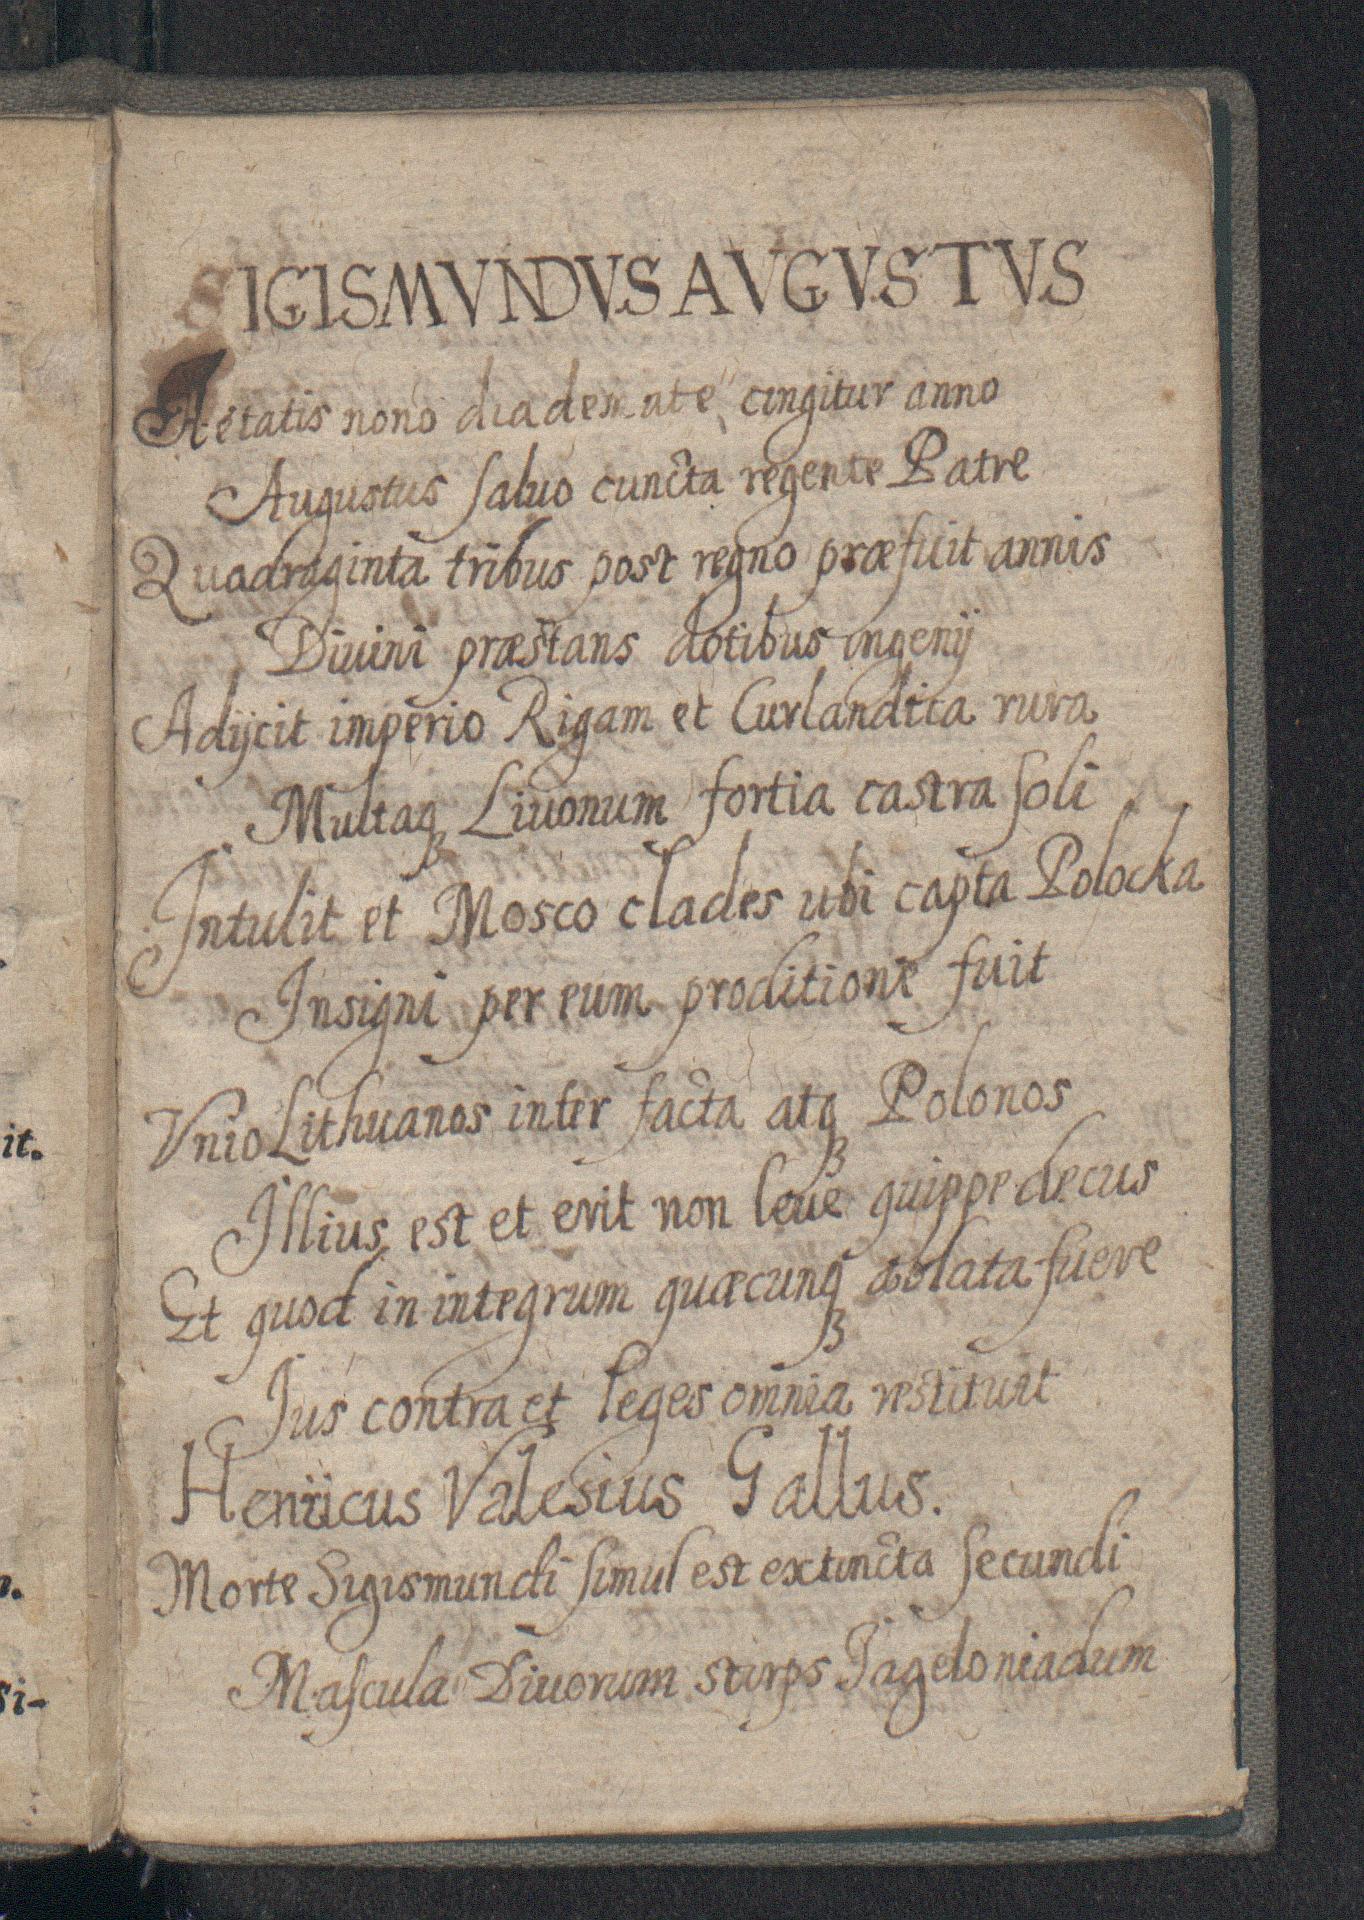 SIGISMVNDVS AVGVSTVS
Aetatis nono diademate cingitur anno
Augustus saluo cuncta regente Patre
Quadraginta tribus post regno præfuit annis
Diuini præstans dotibus ingenij
Adijcit imperio Rigam et Curlandica rura
Multaqȝ Liuonum fortia castra soli
Intulit et Mosco clades ubi capta Polocka
Insigni per eum proditione fuit
Vnio Lithuanos inter facta atqȝ Polonos
Illius est et erit non leue quippe decus
Et quod in integrum quæcunqȝ ablata fuere
Jus contra et leges omnia restituit
Henricus Valesius Gallus.
Morte Sigismundi simul est extincta secundi
Mascula Diuorum stirps Jageloniadum
it.
si-